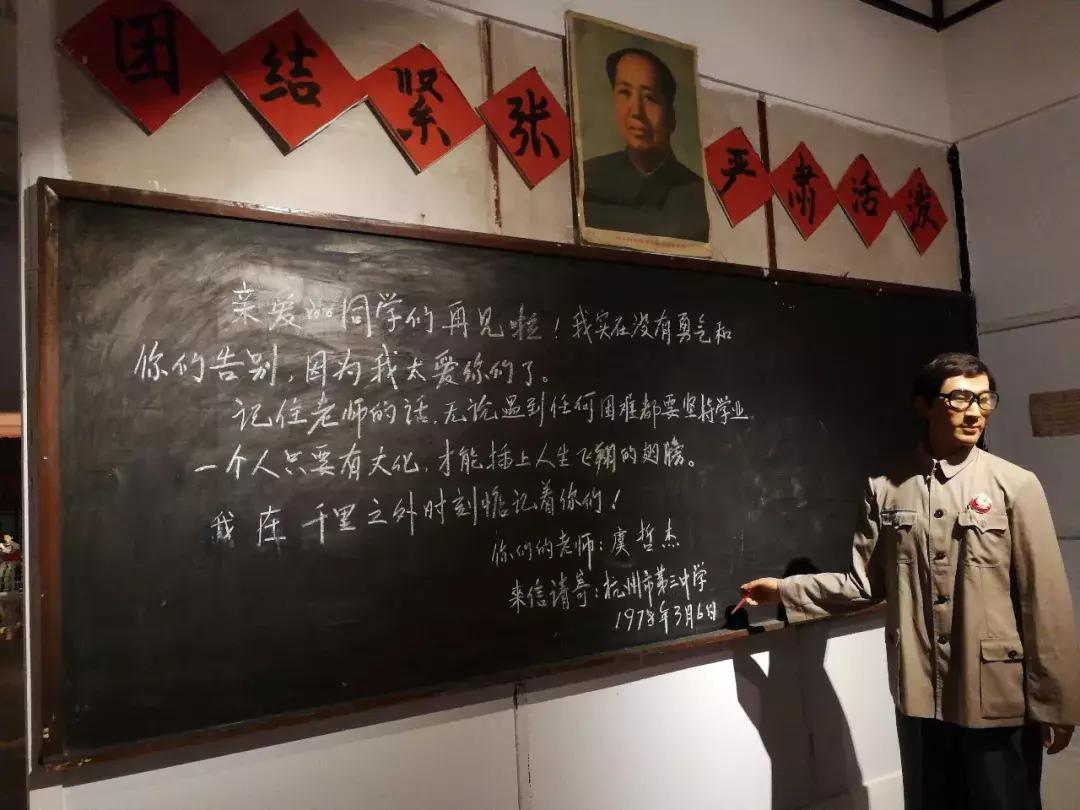 团结紧张
严肃活泼
亲爱的同学们再见啦！我实在没有勇气和
你们告别，因为我太爱你们了。
记住老师的话，无论遇到任何困难都要坚持学业
一个人只要有文化，才能插上人生飞翔的翅膀。
我在千里之外时刻惦记着你们！
你们的老师：虞哲杰
来信请寄：杭州市第三中学
1978年3月6日